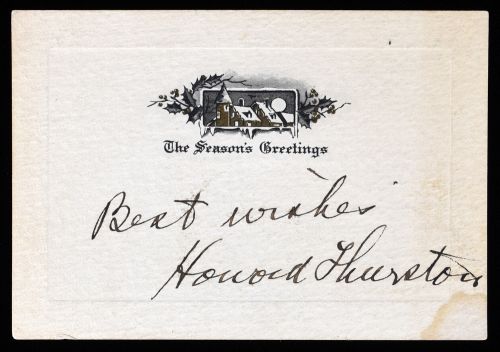 The Season's Greetings
Best wishes
Howard Thurston